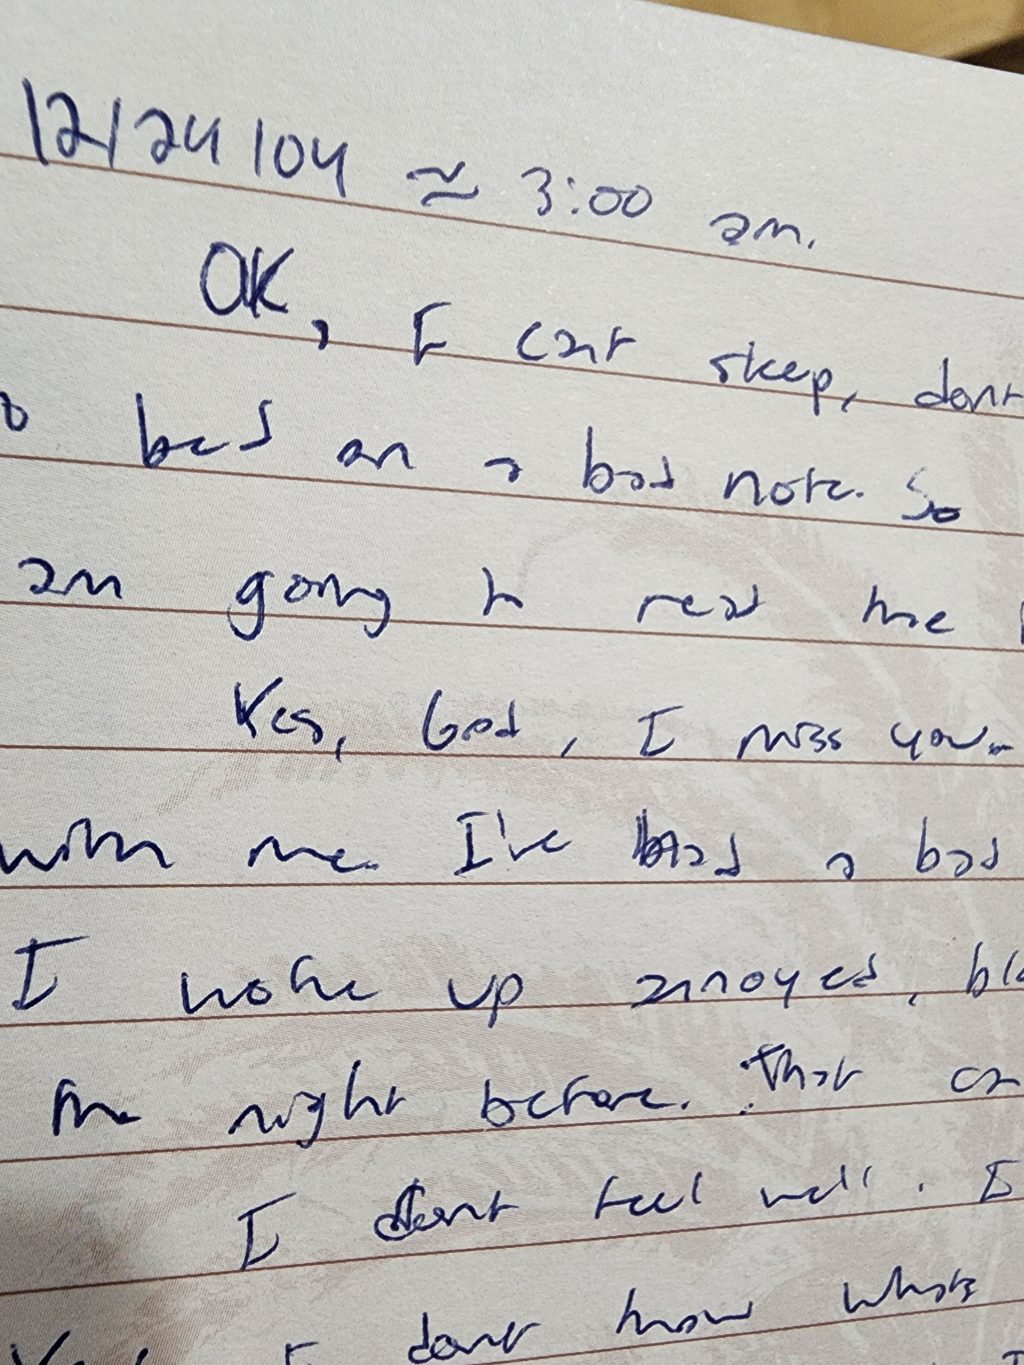 12/24/04 ≈ 3:00 am.
OK, I cant sleep, dont
bed on a bad note. So
am going to read the
Yes, God, I miss you.
with me. I've had a bad
I woke up annoyed,
the night before. That
I dont feel well. I
I dont know whats